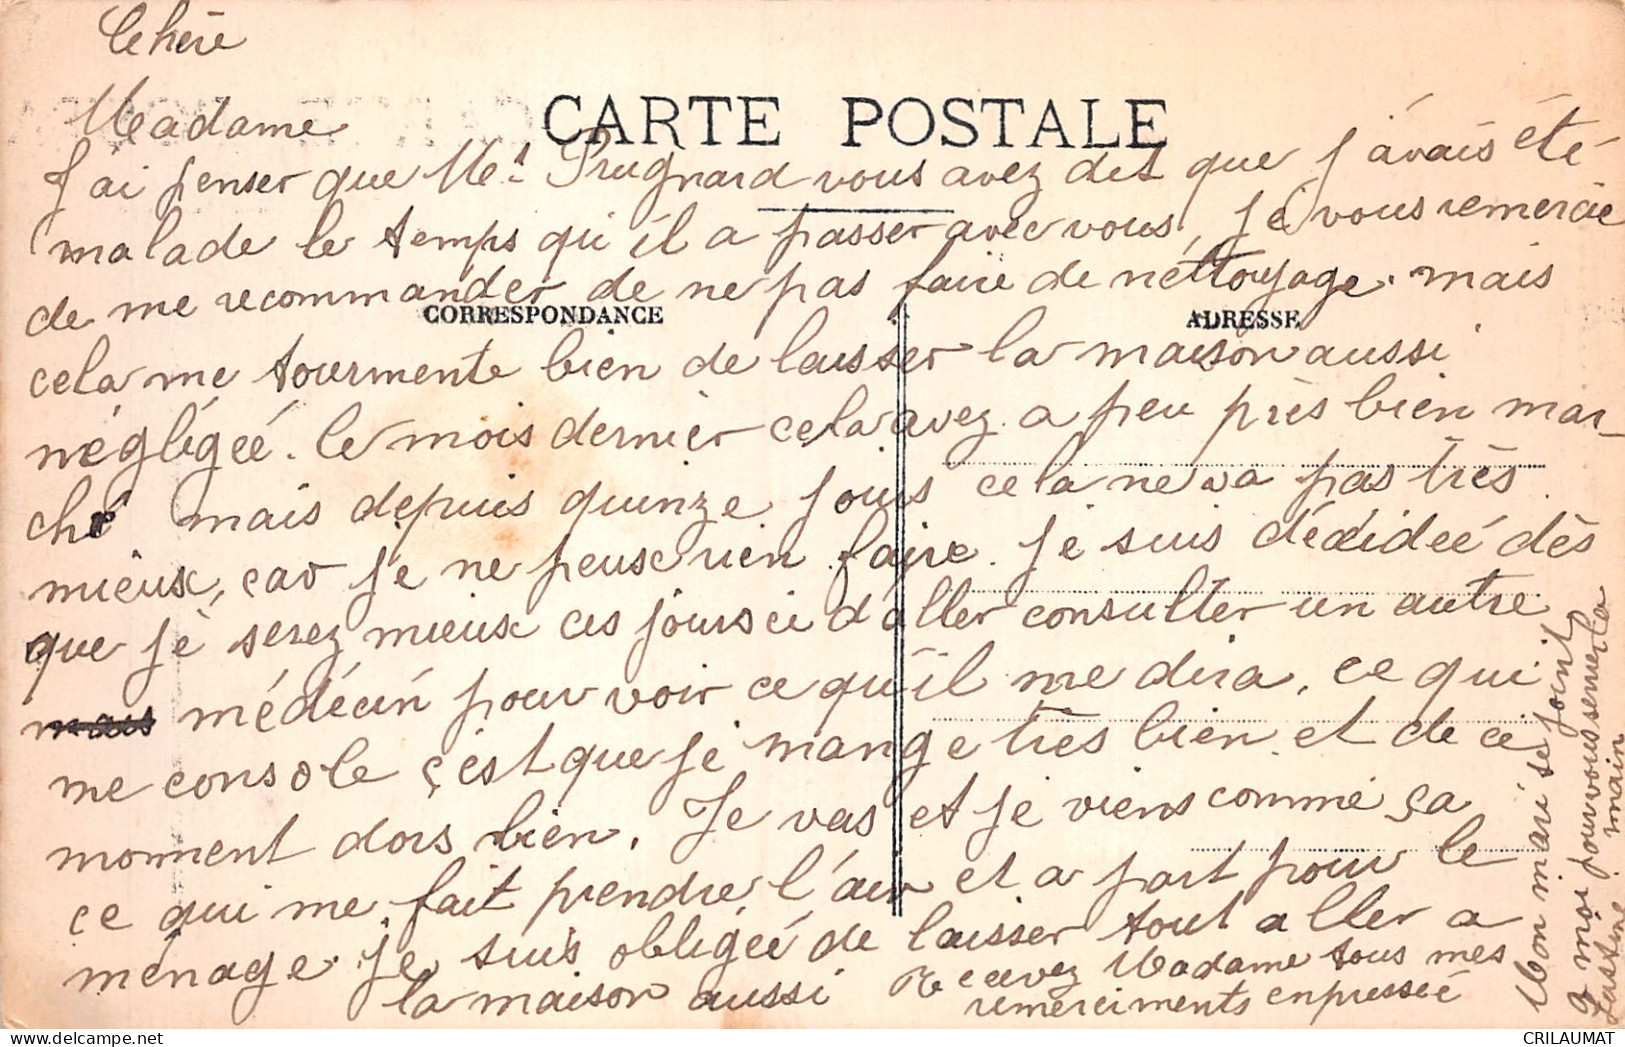 Chère
Madame
CARTE POSTALE
J'ai penser que Mr Prugnard vous avez dit que j'avais été
malade le temps qu'il a passer avec vous, je vous remercie
de me recommander de ne pas faire de nettoyage. mais
CORRESPONDANCE
ADRESSE
cela me tourmente bien de laisser la maison aussi
négligée. le mois dernier cela avez a peu près bien mar-
ché mais depuis quinze jours cela ne va pas très
mieux, car je ne peux rien faire. je suis décidée dès
que je serez mieux ces jours ci d'aller consulter un autre
mais médécin pour voir ce qu'il me dira, ce qui
me console c'est que je mange très bien et de ce
moment dors bien. Je vas et je viens comme ça
ce qui me fait prendre l'air et a part pour le
ménage. je suis obligée de laisser tout aller a
la maison aussi
Recevez Madame tous mes
remerciments enpressée
Mon mari se joint
a moi pour vous serrer la
main
Justine
CRILAUMAT